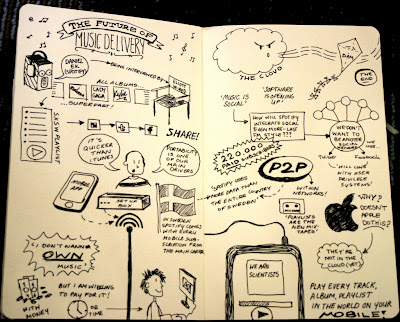 THE FUTURE OF
MUSIC DELIVERY
DANIEL
EK
(SPOTIFY)
BEING INTERVIEWED BY
ALL ALBUMS
LADY
GAGA
...SUPERPART
SHARE!
IT'S
QUICKER THAN
ITUNES
PORTABILITY
IS ONE
OF OUR
MAIN
DRIVERS
SET UP
BOX
IN SWEDEN
SPOTIFY COMES
WITH EVERY
MOBILE SUB-
SCRIPTION FROM
THE MAIN CARRIER
I DON'T WANNA
OWN
MUSIC
BUT I AM WILLING
TO PAY FOR IT!
WITH
MONEY
OR
TIME
THE CLOUD
THE
END
'MUSIC IS
SOCIAL'
'SOFTWARE
IS OPENING
UP'
HOW WILL SPOTIFY
INTEGRATE SOCIAL
EVEN MORE - LAST
FM STYLE???
WE DON'T
WANT TO
BE ANOTHER
SOCIAL
NETWORK
WE USE...
Twitter
Facebook
320000
PAID SUBSCRIBERS
P2P
'WILL COME
WITH USER
PRIVILEGE
SYSTEMS'
SPOTIFY USES
MORE DATA THAN
THE ENTIRE COUNTRY
OF SWEDEN
WITHIN
NETWORKS!
'PLAYLISTS
ARE THE
NEW MIX-
TAPES'
'WHY?
DOESN'T
APPLE
DO THIS?
THEY'RE
NOT IN THE
CLOUD (YET)
WE ARE
SCIENTISTS
PLAY EVERY TRACK,
ALBUM, PLAYLIST
IN THE WORLD ON YOUR
MOBILE!